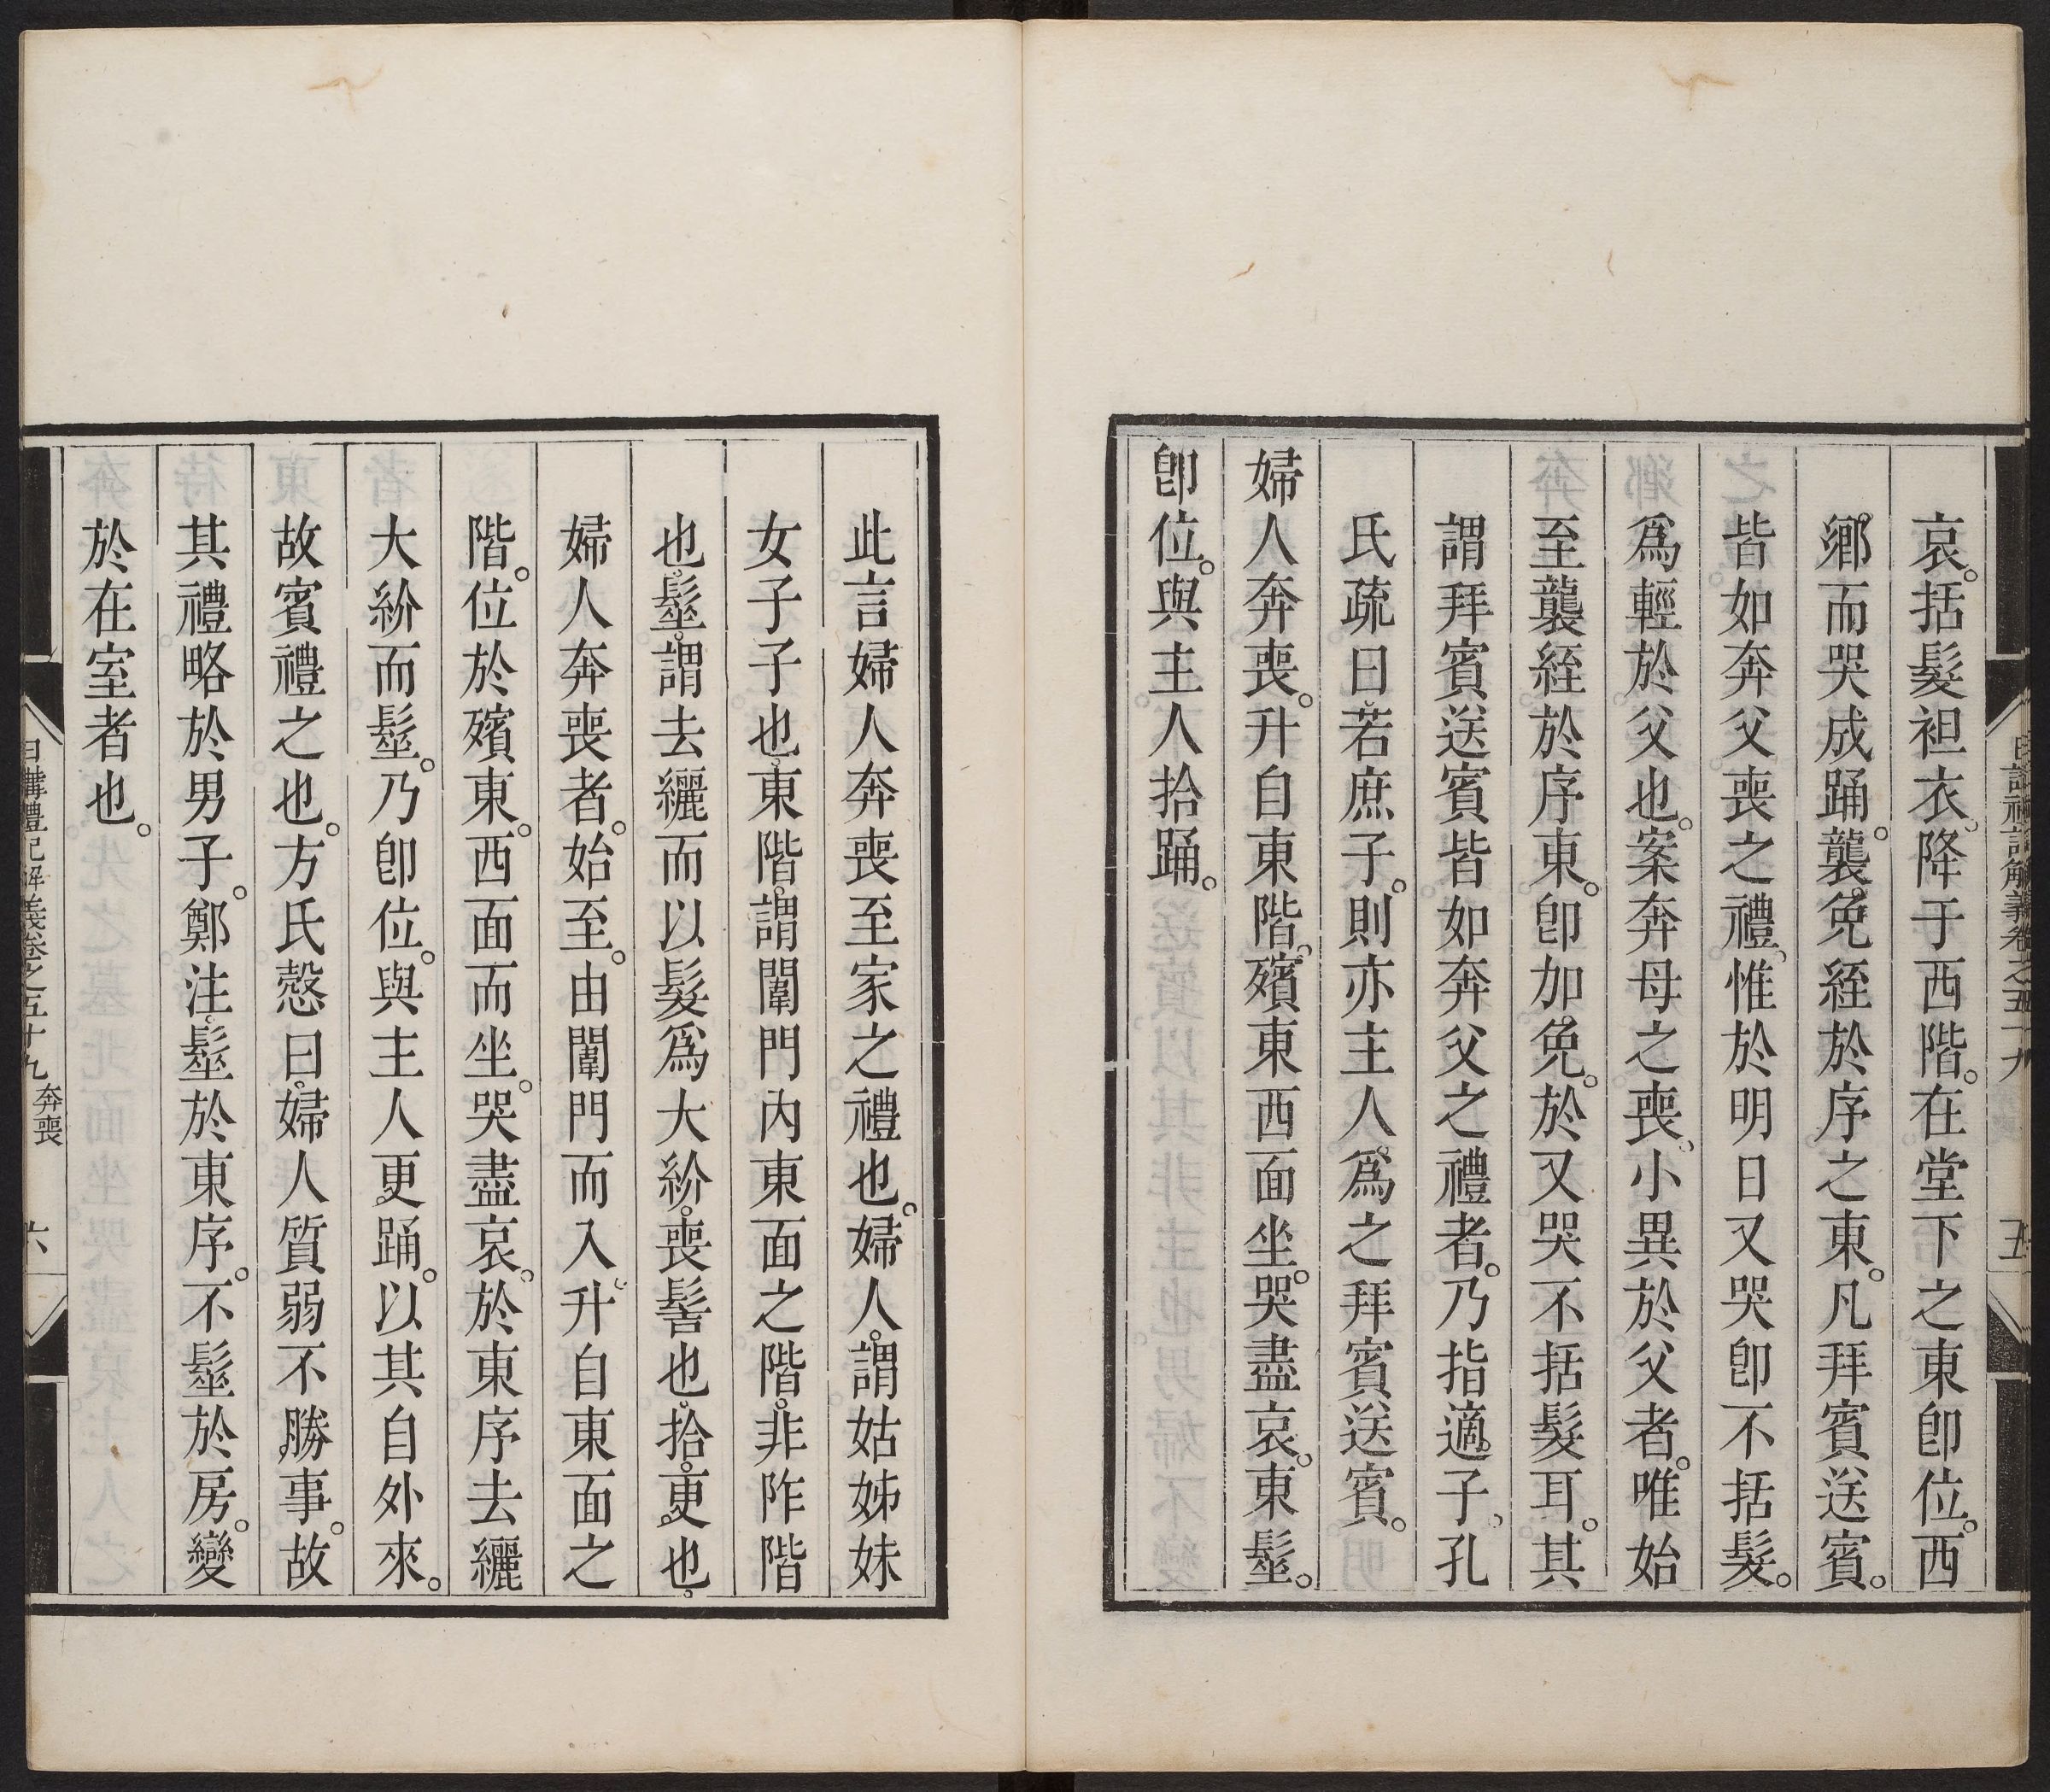 哀。括髮袒衣、降于西階。在堂下之東卽位。西
鄉而哭成踊。襲、免絰於序之東。凡拜賓送賓。
皆如奔父喪之禮、惟於明日又哭卽不括髮。
爲輕於父也。案奔母之喪、小異於父者。唯始
至襲絰於序東。卽加免。於又哭不括髮耳。其
謂拜賓送賓皆如奔父之禮者。乃指適子、孔
氏疏曰、若庶子。則亦主人、爲之拜賓送賓。
婦人奔喪。升自東階。殯東西面坐。哭盡哀。東髽。
卽位。與主人拾踊。
日講禮記解義卷之五十九
五
此言婦人奔喪至家之禮也。婦人、謂姑姊妹
女子子也、東階、謂闈門內東面之階、非阼階
也、髽、謂去纚而以髮爲大紒。喪髻也、拾、更也、
婦人奔喪者。始至。由闈門而入、升自東面之
階。位於殯東。西面而坐。哭盡哀。於東序去纚
大紒而髽。乃卽位。與主人更踊。以其自外來。
故賓禮之也。方氏愨曰、婦人質弱不勝事。故
其禮略於男子。鄭注、髽於東序。不髽於房。變
於在室者也。
日講禮記解義卷之五十九 奔喪
六